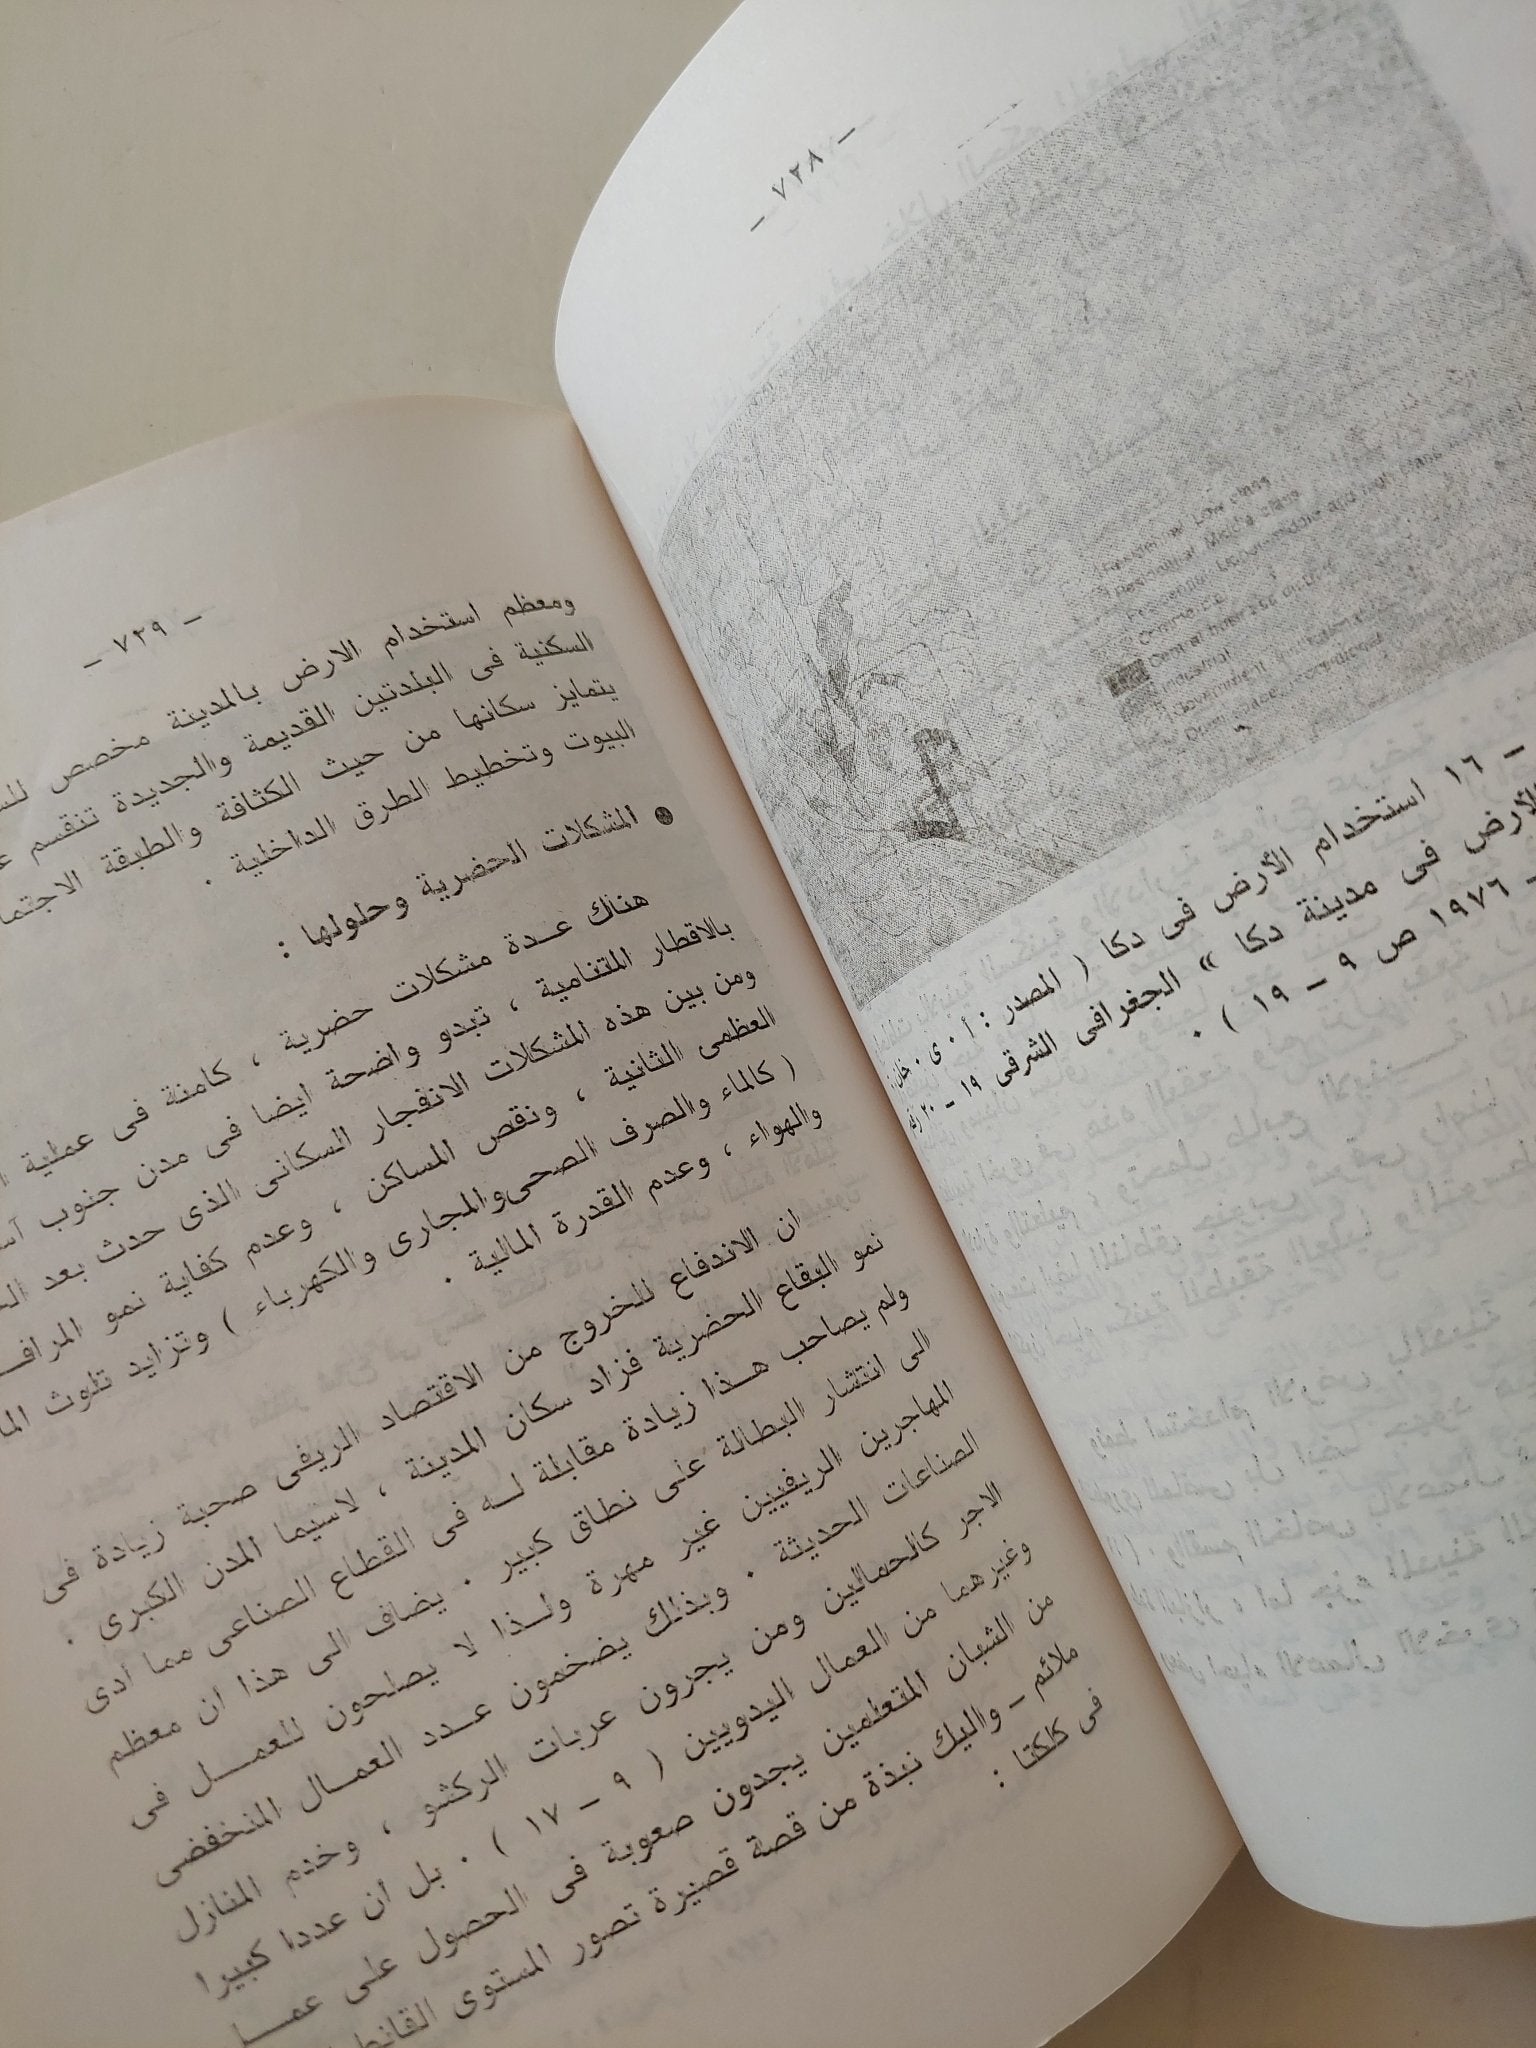 - ٧٢٨ -
Residential Low class
Residential Middle class
Residential Upper middle and high class
Commercial
Central business district
Industrial
Government Institution
- ١٦ استخدام الأرض فى دكا ( المصدر : أ ٠ ى ٠ خان :
الأرض فى مدينة دكا » الجغرافى الشرقى ١٩ - ٢٠
- ١٩٧٦ ص ٩ - ١٩ ) ٠
- ٧٢٩ -
ومعظم استخدام الارض بالمدينة مخصص
السكنية فى البلدتين القديمة والجديدة تنقسم
يتمايز سكانها من حيث الكثافة والطبقة
البيوت وتخطيط الطرق الداخلية ٠
● المشكلات الحضرية وحلولها :
هناك عــدة مشكلات حضرية ، كامنة فى عملية
بالاقطار المتنامية ، تبدو واضحة ايضا فى مدن جنوب
ومن بين هذه المشكلات الانفجار السكانى الذى حدث بعد
العظمى الثانية ، ونقص المساكن ، وعدم كفاية نمو
( كالماء والصرف الصحى والمجارى والكهرباء ) وتزايد تلوث
والهواء ، وعدم القدرة المالية ٠
ان الاندفاع للخروج من الاقتصاد الريفى صحبة زيادة فى
نمو البقاع الحضرية فزاد سكان المدينة ، لاسيما المدن الكبرى ٠
ولم يصاحب هــذا زيادة مقابلة لــه فى القطاع الصناعى مما ادى
الى انتشار البطالة على نطاق كبير ٠ يضاف الى هذا ان معظم
المهاجرين الريفيين غير مهرة ولــذا لا يصلحون للعمــل فى
الصناعات الحديثة ٠ وبذلك يضخمون عــدد العمــال المنخفضى
الاجر كالحمالين ومن يجرون عربات الركشو ، وخدم المنازل
وغيرهما من العمال اليدويين ( ٩ - ١٧ ) ٠ بل ان عددا كبيرا
من الشبان المتعلمين يجدون صعوبة فى الحصول على عمــل
ملائم - واليك نبذة من قصة قصيرة تصور المستوى
فى كلكتا :